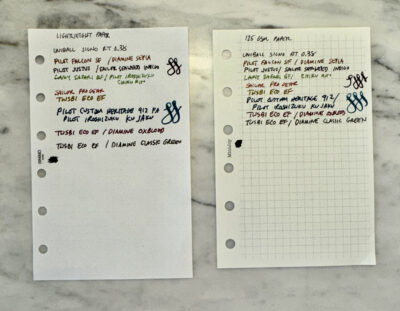 LIGHTWEIGHT PAPER
UNIBALL SIGNO RT 0.38
PILOT FALCON SF / DIAMINE SEPIA
PILOT JUSTUS / SAILOR
LAMY SAFARI EF / PILOT IROSHIZUKU
CHIKU RIN
SAILOR PRO GEAR
TWSBI ECO EF
PILOT CUSTOM HERITAGE 912 FA
PILOT IROSHIZUKU KUJAKU
TWSBI ECO EF / DIAMINE OXBLOOD
TWSBI ECO EF / DIAMINE CLASSIC GREEN
125 GSM PAPER
UNIBALL SIGNO RT 0.38
PILOT FALCON SF / DIAMINE SEPIA
PILOT JUSTUS / SAILOR
LAMY SAFARI EF / CHIKU RIN
SAILOR PRO GEAR
TWSBI ECO EF
PILOT CUSTOM HERITAGE 912 /
PILOT IROSHIZUKU KUJAKU
TWSBI ECO EF / DIAMINE OXBLOOD
TWSBI ECO EF / DIAMINE CLASSIC GREEN